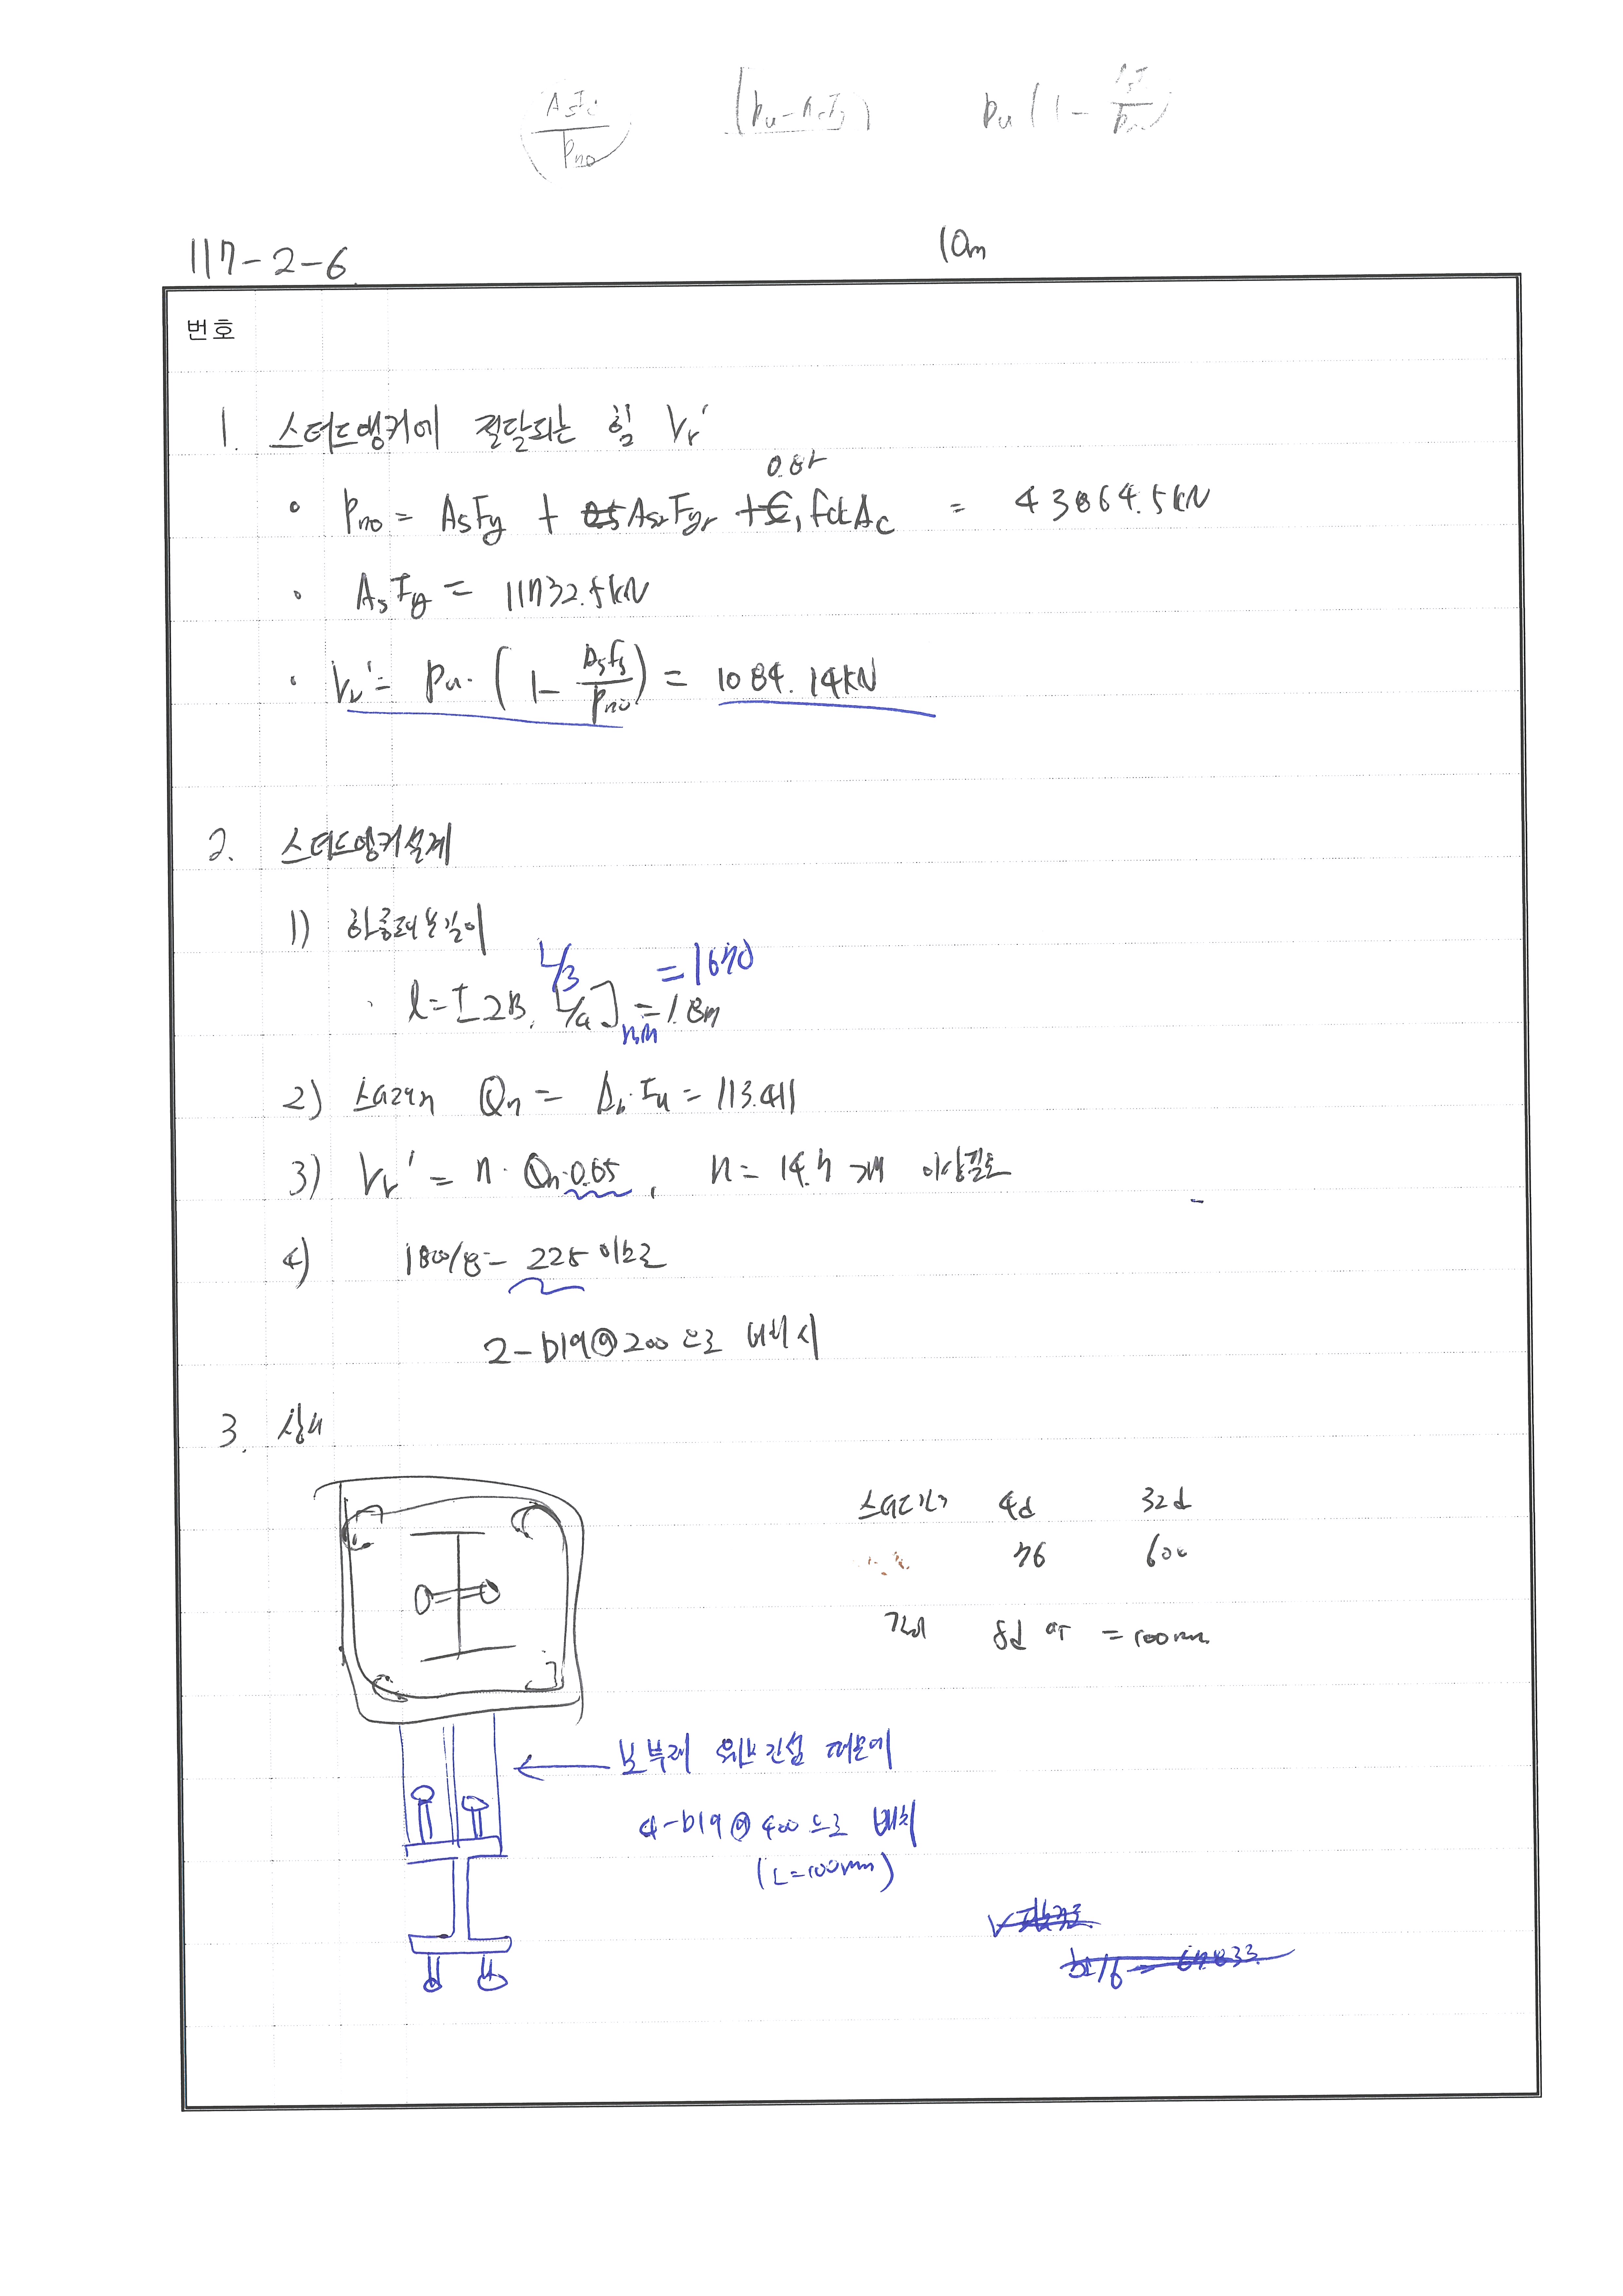 AsFy / Pno (Pu-AsFy) Pu(1-AsF/Pn)
117-2-6 10m
번호
1. 스터드앵커에 전달되는 힘 Vr'
0.85
• Pno = AsFy + AsrFyr + fckAc = 43864.5kN
• AsFy = 11732.5kN
• Vr' = Pu·(1 - AsFy/Pno) = 1084.14kN
2. 스터드앵커설계
1) 하중도입부길이
L/3 = 1670
· l = [2B, L/a]min = 1.8m
2) Qn = As·Fu = 113.411
3) Vr' = n·Qn·0.65, n = 14.7개 이상필요
4) 1800/8 = 225 이므로
2-D19@200 으로 배치시
3. 상세
스터드간격 4d 32d
76 600
길이 5d or = 100mm
← 보부재 웨브간섭 때문에
4-D19@400으로 배치
(L=100mm)